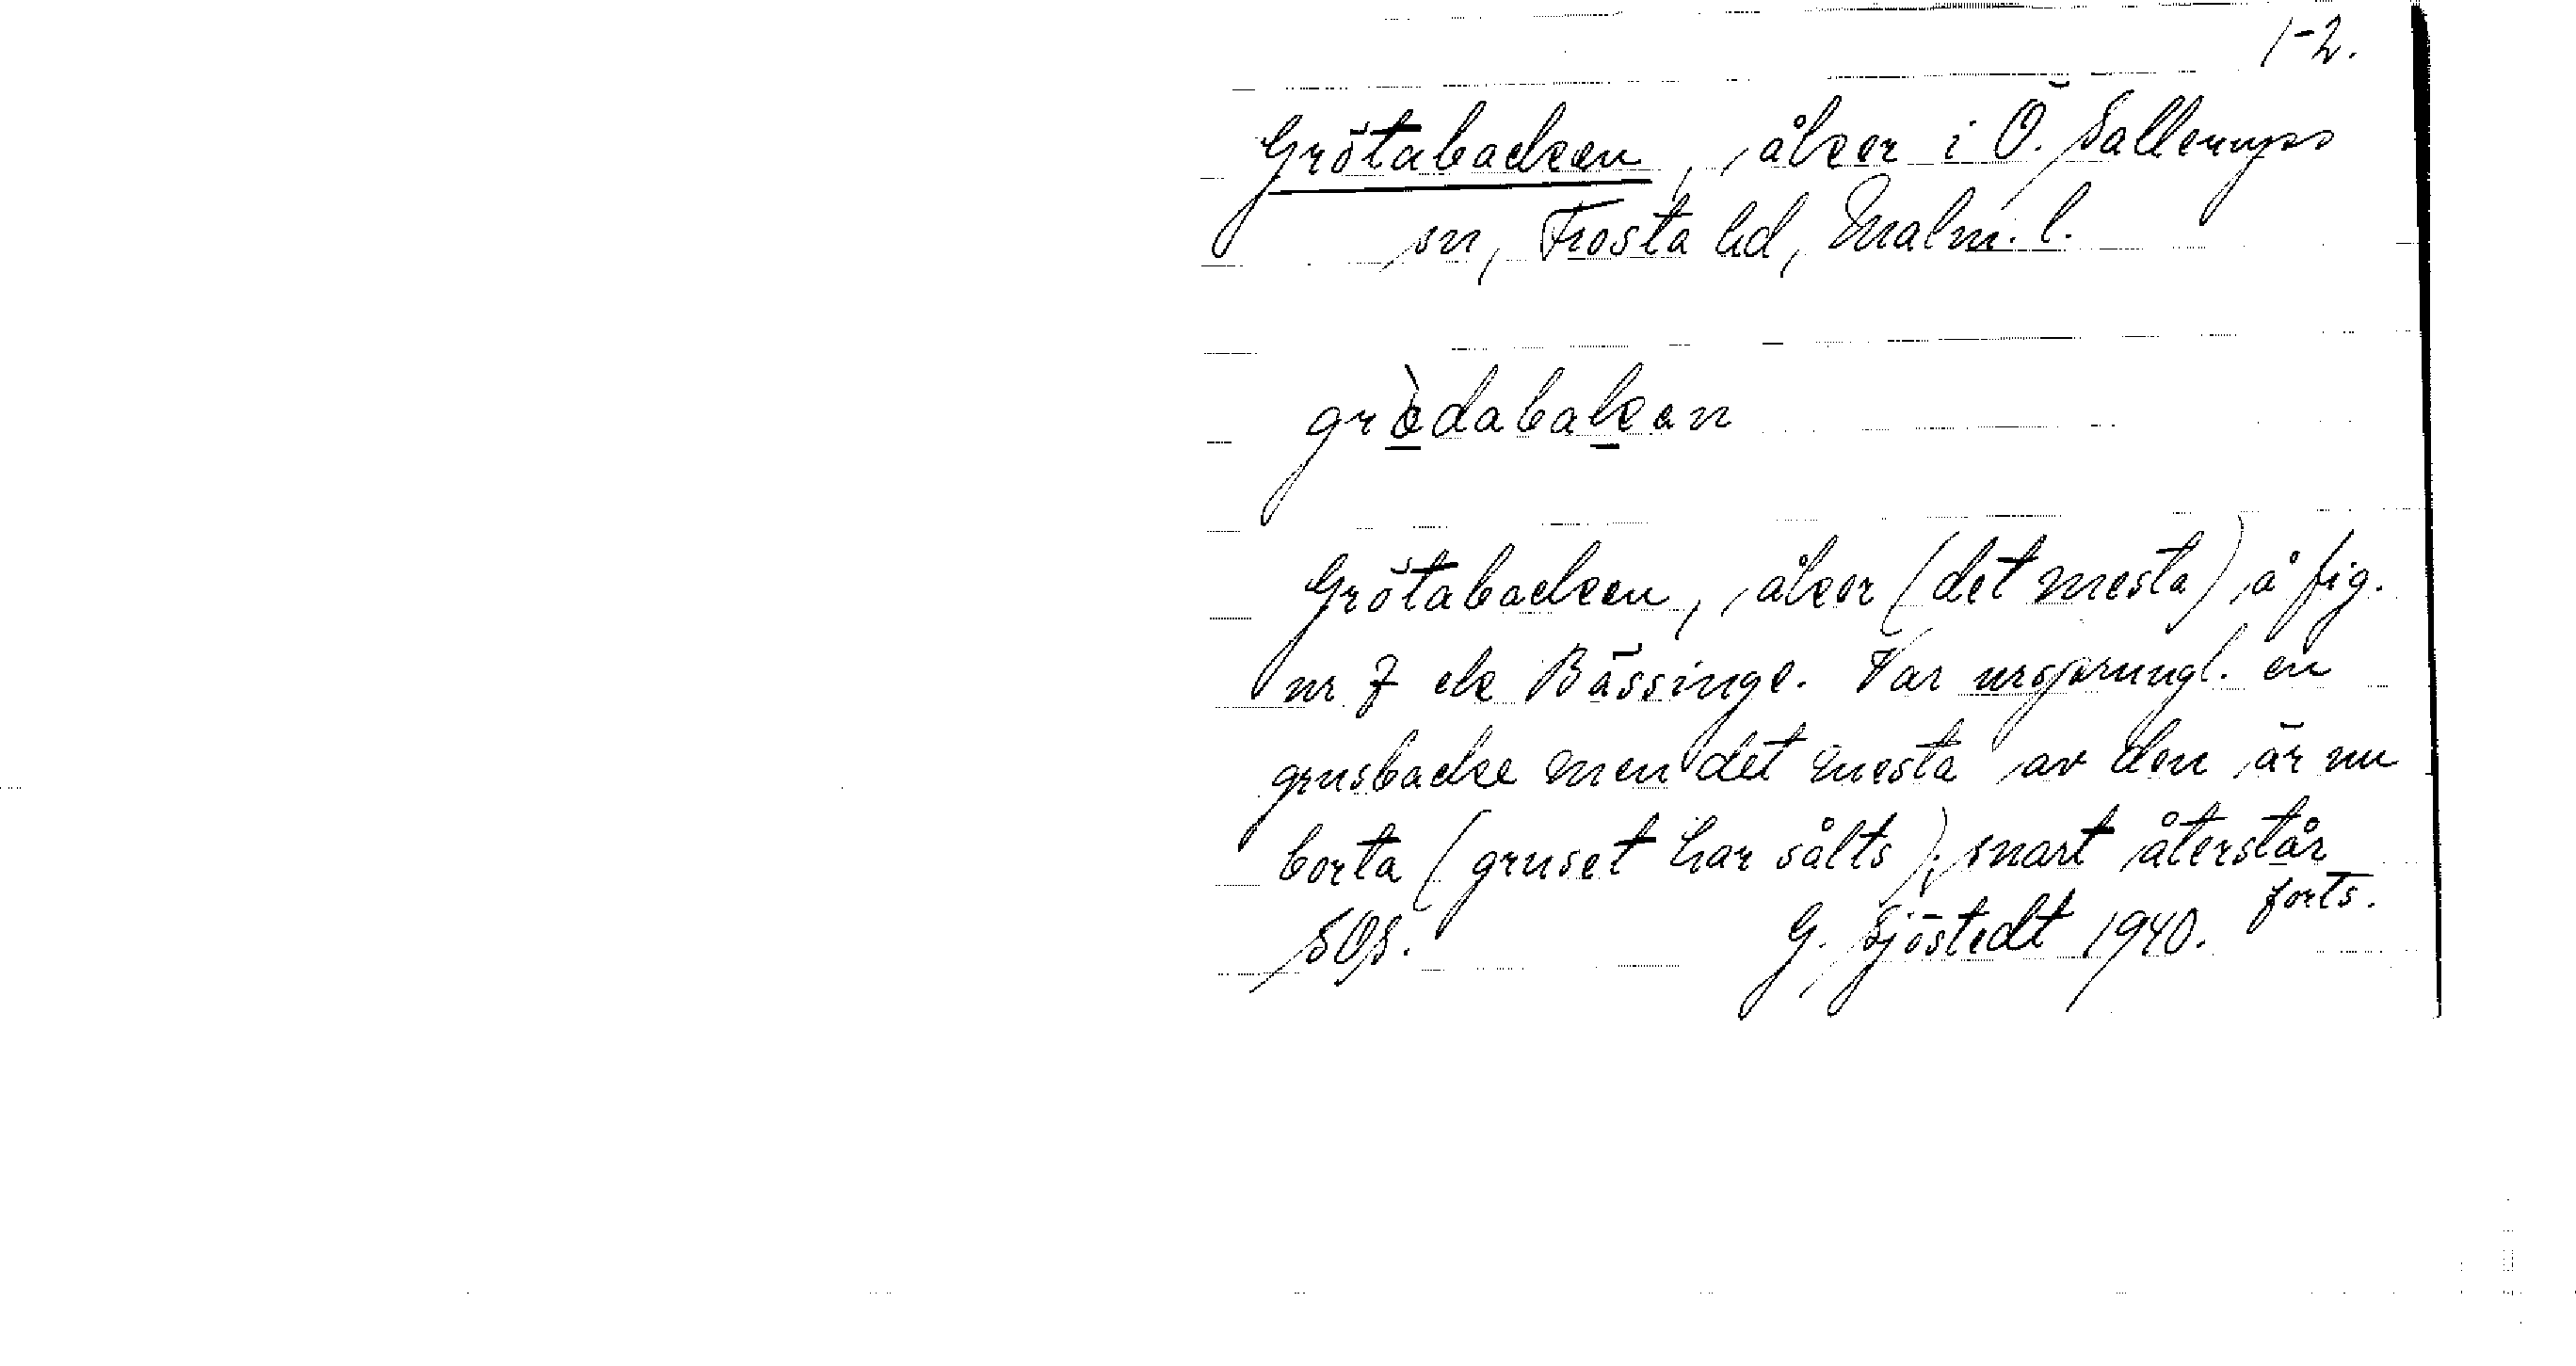 1-2.
Grötabacken, åker i Ö. Sallerups
sn, Frosta hd, Malm. l.
grødabakan
Grötabacken, åker (det mesta) å fig.
nr 7 ek Bässinge. Var ursprungl. en
grusbacke men det mesta av den är nu
borta (gruset har sålts); snart återstår
forts.
SOS. G. Sjöstedt 1940.